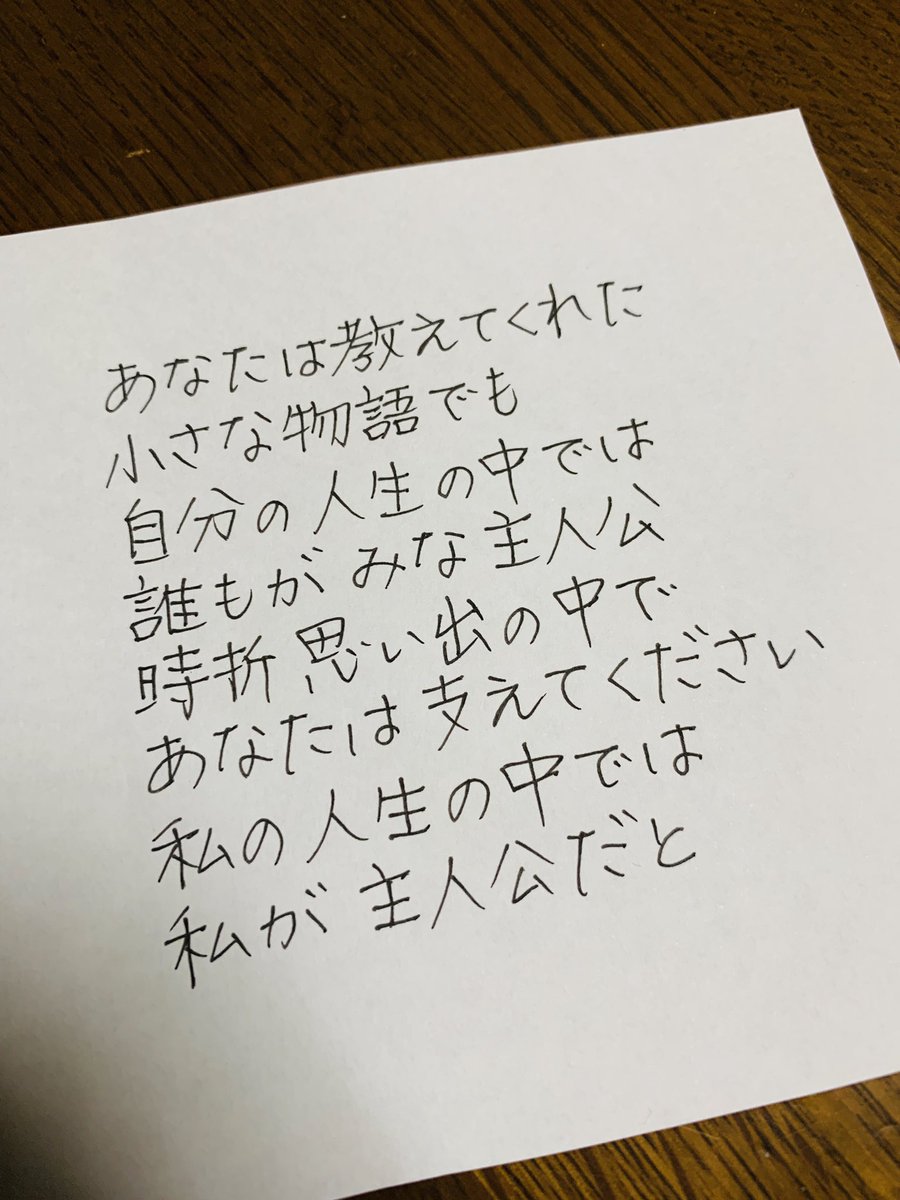 あなたは教えてくれた
小さな物語でも
自分の人生の中では
誰もがみな主人公
時折思い出の中で
あなたは支えてください
私の人生の中では
私が主人公だと